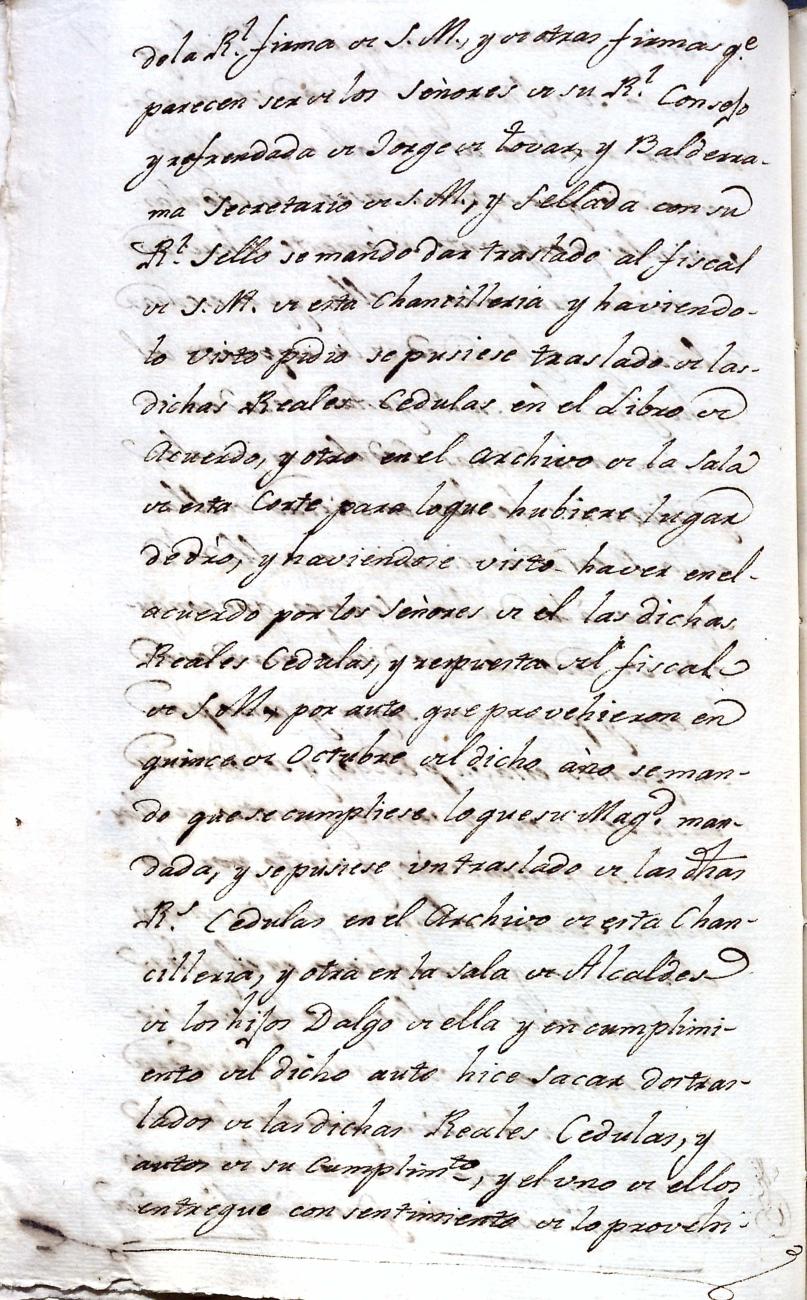 dela R.l firma de S. M., y de otras firmas q.e
parecen ser de los Señores de su R.l Consejo
y refrendada de Jorge de tovar, y Balderra-
ma Secretario de S. M., y Sellada con su
R.l Sello se mando dar traslado al fiscal
de S. M. de esta Chancilleria y haviendo-
lo visto pidio se pusiese traslado de las-
dichas Reales Cedulas en el Libro de
Acuerdo, y otro en el archivo de la Sala
de esta Corte para loque hubiere lugar
dedro, y haviendose visto haver en el-
acuerdo por los Señores de el las dichas
Reales Cedulas, y respuesta del fiscal
de S. M. por auto que provehieron en
quince de Octubre del dicho año se man-
do que se cumpliese lo que su Mag.d man-
dada, y se pusiese un traslado de las dhas
R.s Cedulas en el Archivo de esta Chan-
cilleria, y otra en la Sala de Alcaldes
de los hijos Dalgo de ella y en cumplimi-
ento del dicho auto hice sacar dos tras-
lados de las dichas Reales Cedulas, y
autos de su Cumplim.to, y el uno de ellos
entregue con sentimiento de lo provehi-